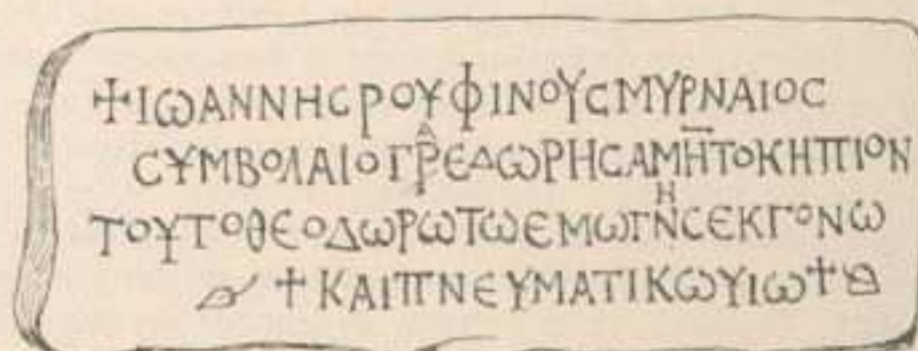 ✝ΙΩΑΝΝΗϹΡΟΥΦΙΝΟΥϹΜΥΡΝΑΙΟϹ
ϹΥΜΒΟΛΑΙΟΓΡΕΔΩΡΗϹΑΜΗΤΟΚΗΠΙΟΝ
ΤΟΥΤΟΘΕΟΔΩΡΩΤΩΕΜΩΓΝΗϹΕΚΓΟΝΩ
✝ΚΑΙΠΝΕΥΜΑΤΙΚΩΥΙΩ✝